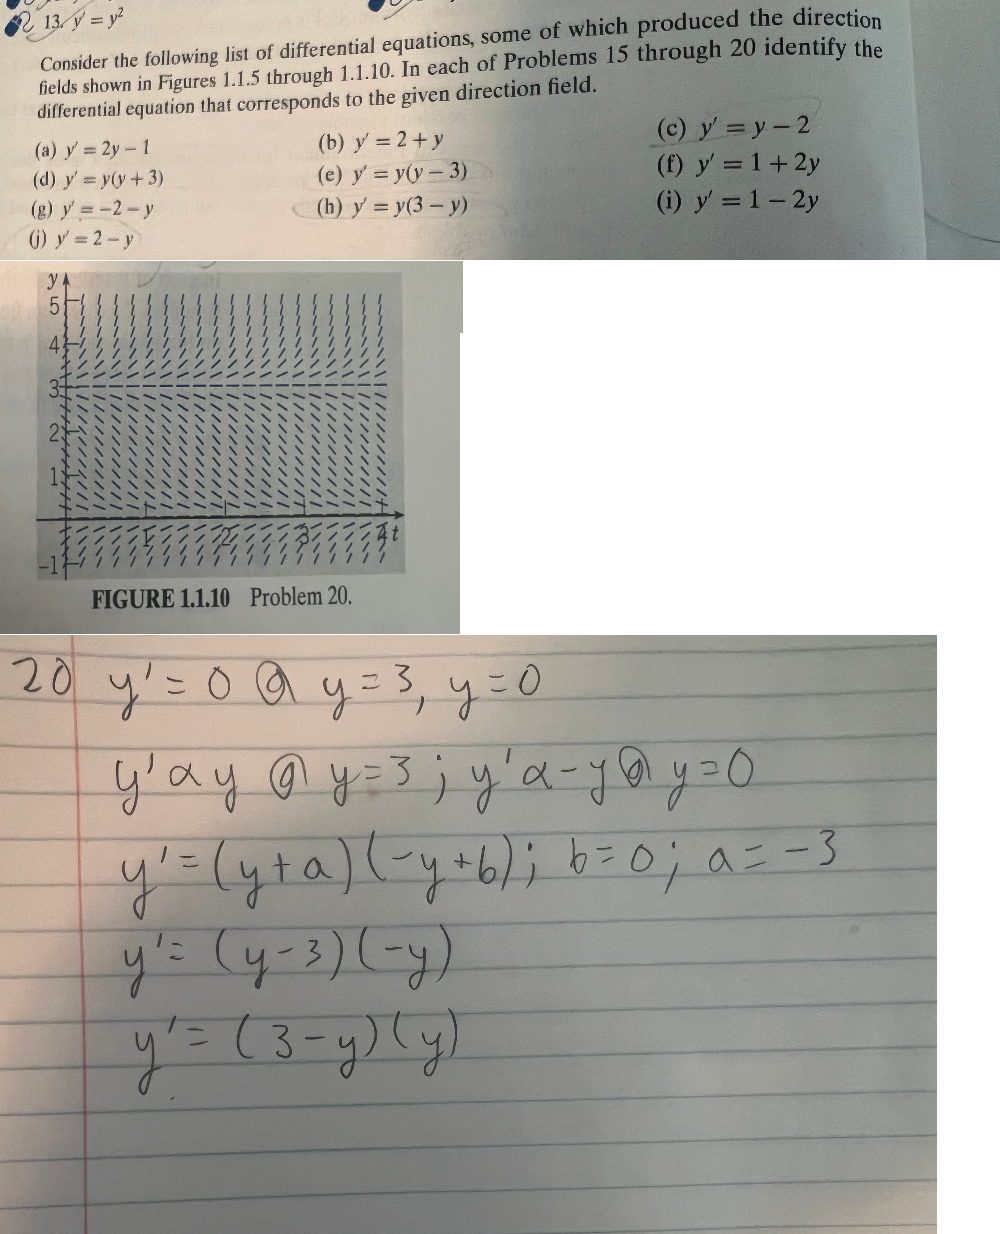 13. y′ = y²
Consider the following list of differential equations, some of which produced the direction
fields shown in Figures 1.1.5 through 1.1.10. In each of Problems 15 through 20 identify the
differential equation that corresponds to the given direction field.
(a) y′ = 2y − 1
(b) y′ = 2 + y
(c) y′ = y − 2
(d) y′ = y(y + 3)
(e) y′ = y(y − 3)
(f) y′ = 1 + 2y
(g) y′ = −2 − y
(h) y′ = y(3 − y)
(i) y′ = 1 − 2y
(j) y′ = 2 − y
y
5
4
3
2
1
1 2 3 4 t
−1
FIGURE 1.1.10 Problem 20.
20 y' = 0 @ y = 3, y = 0
y' α y @ y = 3 ; y' α -y @ y = 0
y' = (y + a)(-y + b); b = 0; a = -3
y' = (y - 3)(-y)
y' = (3 - y)(y)